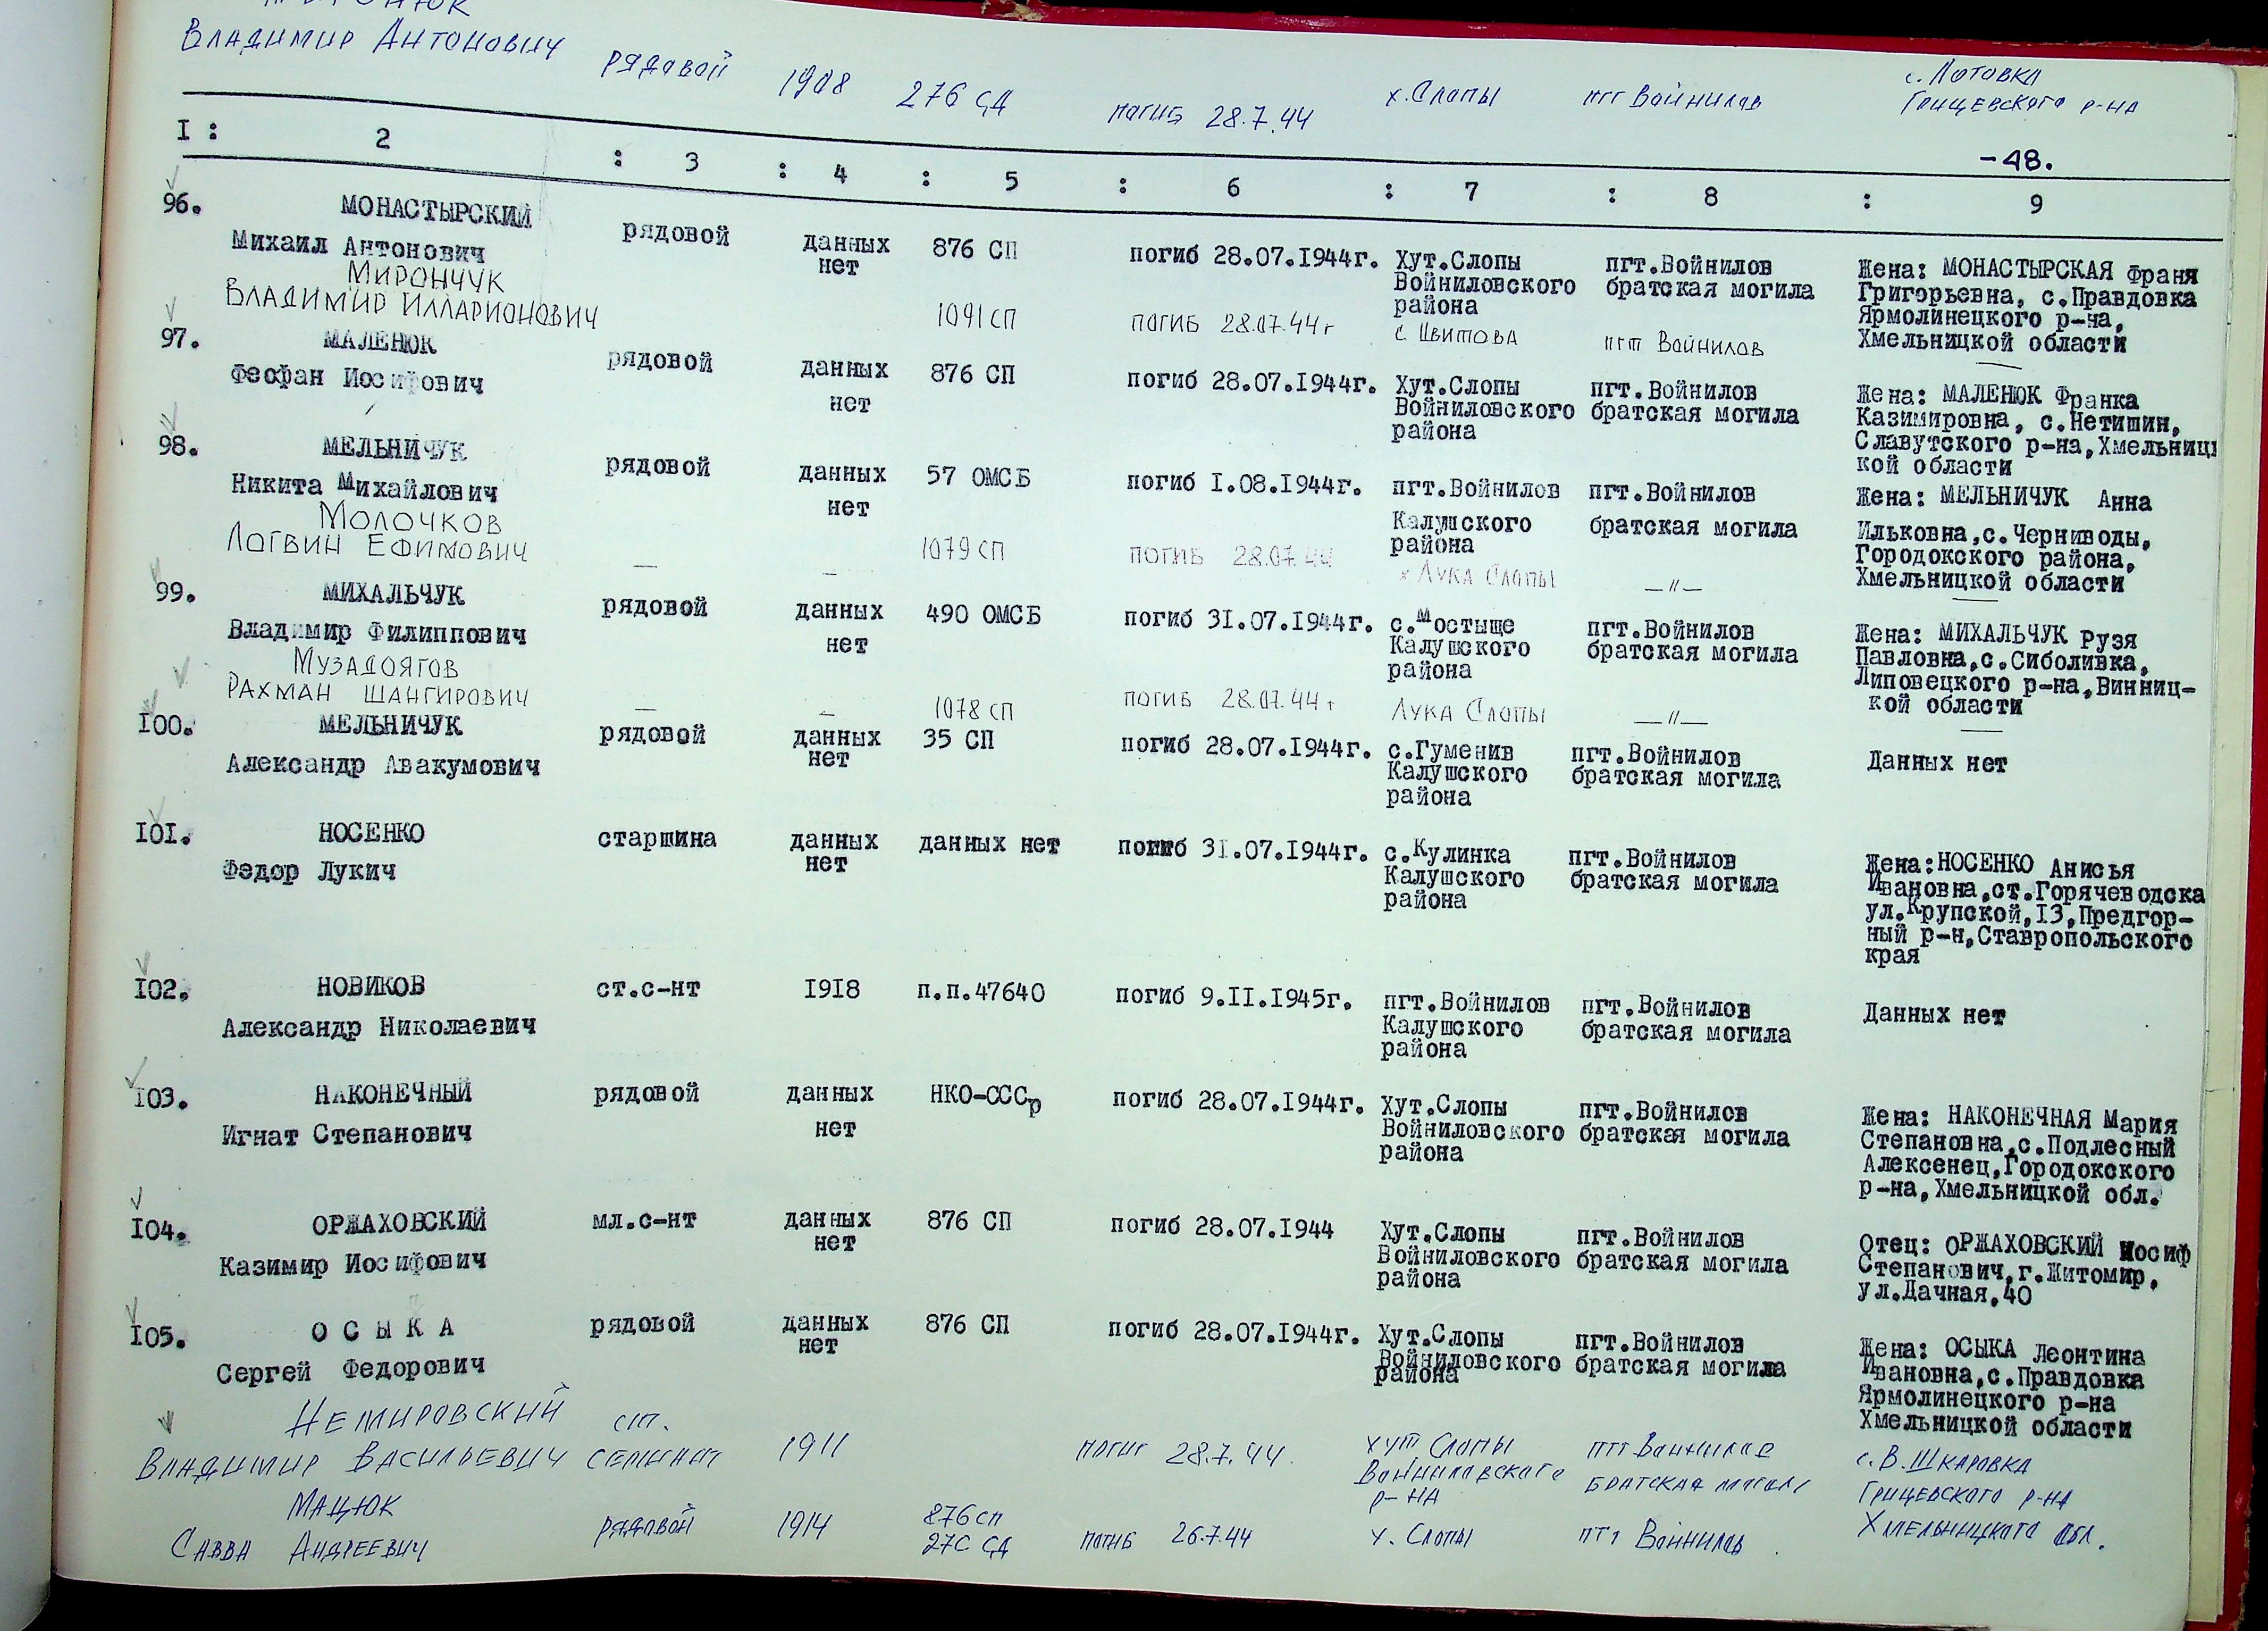 Владимир Антонович рядовой 1908 276 СД погиб 28.7.44 х.Слопы пгт Войнилов с. Лотовка
Грицевского р-на
-48.
I : 2 : 3 : 4 : 5 : 6 : 7 : 8 : 9
96. МОНАСТЫРСКИЙ рядовой данных 876 СП погиб 28.07.1944г. Хут.Слопы пгт.Войнилов Жена: МОНАСТЫРСКАЯ Франя
Михаил Антонович нет Войниловского братская могила Григорьевна, с.Правдовка
района Ярмолинецкого р-на,
Хмельницкой области
Мирончук
Владимир Илларионович 1091 СП погиб 28.07.44г с Цвитова пгт Войнилов —
97. МАЛЕНЮК рядовой данных 876 СП погиб 28.07.1944г. Хут.Слопы пгт.Войнилов Жена: МАЛЕНЮК Франка
Феофан Иосифович нет Войниловского братская могила Казимировна, с.Нетишин,
района Славутского р-на,Хмельниц
кой области
98. МЕЛЬНИЧУК рядовой данных 57 ОМСБ погиб I.08.1944г. пгт.Войнилов пгт.Войнилов Жена: МЕЛЬНИЧУК Анна
Никита Михайлович нет Калушского братская могила Ильковна,с.Черниводы,
района Городокского района,
Хмельницкой области
Молочков
Логвин Ефимович — — 1079 СП погиб 28.07.44 х Лука Слопы —"— —
99. МИХАЛЬЧУК рядовой данных 490 ОМСБ погиб 3I.07.I944г. с.Мостыще пгт.Войнилов Жена: МИХАЛЬЧУК Рузя
Владимир Филиппович нет Калушского братская могила Павловна,с.Сиболивка,
района Липовецкого р-на,Винниц-
кой области
Музадоягов
Рахман Шангирович — — 1078 СП погиб 28.07.44 г Лука Слопы —"— —
I00. МЕЛЬНИЧУК рядовой данных 35 СП погиб 28.07.I944г. с.Гуменив пгт.Войнилов Данных нет
Александр Авакумович нет Калушского братская могила
района
I0I. НОСЕНКО старшина данных данных нет погиб 3I.07.I944г. с.Кулинка пгт.Войнилов Жена:НОСЕНКО Анисья
Федор Лукич нет Калушского братская могила Ивановна,ст.Горячеводска
района ул.Крупской,I3,Предгор-
ный р-н,Ставропольского
края
I02. НОВИКОВ ст.с-нт I9I8 п.п.47640 погиб 9.II.I945г. пгт.Войнилов пгт.Войнилов Данных нет
Александр Николаевич Калушского братская могила
района
I03. НАКОНЕЧНЫЙ рядовой данных НКО-СССр погиб 28.07.I944г. Хут.Слопы пгт.Войнилов Жена: НАКОНЕЧНАЯ Мария
Игнат Степанович нет Войниловского братская могила Степановна,с.Подлесный
района Алексенец,Городокского
р-на,Хмельницкой обл.
I04. ОРЖАХОВСКИЙ мл.с-нт данных 876 СП погиб 28.07.I944 Хут.Слопы пгт.Войнилов Отец: ОРЖАХОВСКИЙ Иосиф
Казимир Иосифович нет Войниловского братская могила Степанович,г.Житомир,
района ул.Дачная,40
I05. О С Ы К А рядовой данных 876 СП погиб 28.07.I944г. Хут.Слопы пгт.Войнилов Жена: ОСЫКА Леонтина
Сергей Федорович нет Войниловского братская могила Ивановна,с.Правдовка
района Ярмолинецкого р-на
Хмельницкой области
Немировский ст.
Владимир Васильевич сержант 1911 погиб 28.7.44. хут Слопы пгт Войнилов с.В.Шкаровка
Войниловского братская могила Грицевского р-на
р-на Хмельницкого обл.
Мацюк 876 сп
Савва Андреевич рядовой 1914 276 СД погиб 26.7.44 х. Слопы пгт Войнилов.